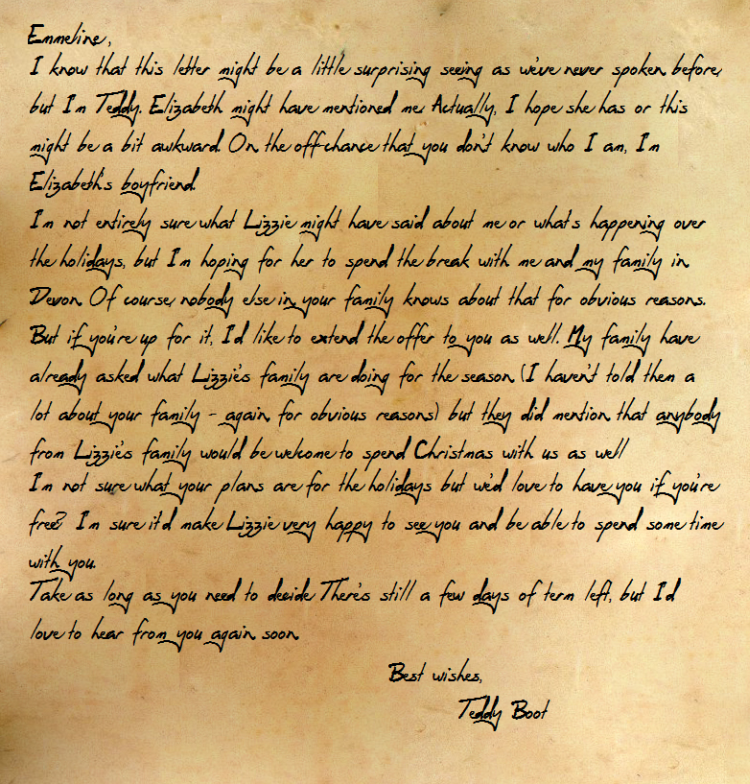 Emmeline,
I know that this letter might be a little surprising seeing as we've never spoken before,
but I'm Teddy. Elizabeth might have mentioned me. Actually, I hope she has or this
might be a bit awkward. On the off-chance that you don't know who I am, I'm
Elizabeth's boyfriend.
I'm not entirely sure what Lizzie might have said about me or what's happening over
the holidays, but I'm hoping for her to spend the break with me and my family in
Devon. Of course, nobody else in your family knows about that for obvious reasons.
But if you're up for it, I'd like to extend the offer to you as well. My family have
already asked what Lizzie's family are doing for the season (I haven't told them a
lot about your family - again, for obvious reasons) but they did mention that anybody
from Lizzie's family would be welcome to spend Christmas with us as well
I'm not sure what your plans are for the holidays but we'd love to have you if you're
free? I'm sure it'd make Lizzie very happy to see you and be able to spend some time
with you.
Take as long as you need to decide. There's still a few days of term left, but I'd
love to hear from you again soon.
Best wishes,
Teddy Boot